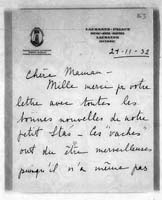 LAUSANNE-PALACE
LAUSANNE
27-11-32
Chère Maman -
Mille merci pr votre
lettre avec toutes les
bonnes nouvelles de notre
petit Stas - les "vaches"
ont du être merveilleuses
puisqu'il n'a même pas